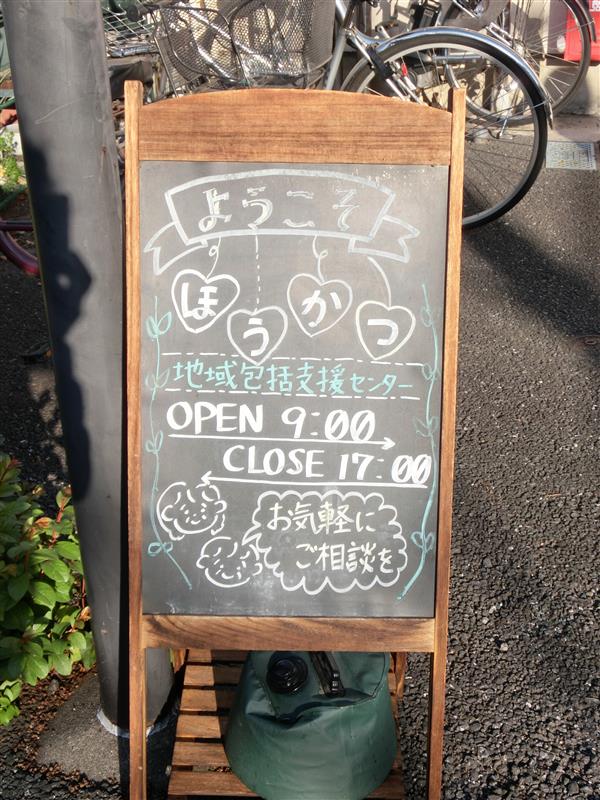 ようこそ
ほうかつ
地域包括支援センター
OPEN 9:00
CLOSE 17:00
お気軽に
ご相談を